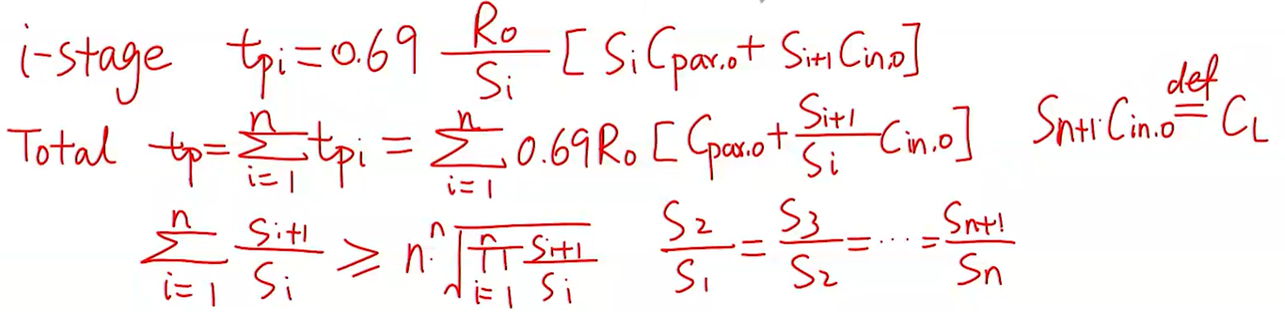 i-stage t_{pi} = 0.69 \frac{R_0}{S_i} [ S_i C_{par.0} + S_{i+1} C_{in.0} ]
Total t_p = \sum_{i=1}^{n} t_{pi} = \sum_{i=1}^{n} 0.69 R_0 [ C_{par.0} + \frac{S_{i+1}}{S_i} C_{in.0} ] S_{n+1} C_{in.0} \overset{def}{=} C_L
\sum_{i=1}^{n} \frac{S_{i+1}}{S_i} \geqslant n \cdot \sqrt[n]{\prod_{i=1}^{n} \frac{S_{i+1}}{S_i}} \frac{S_2}{S_1} = \frac{S_3}{S_2} = \cdots = \frac{S_{n+1}}{S_n}